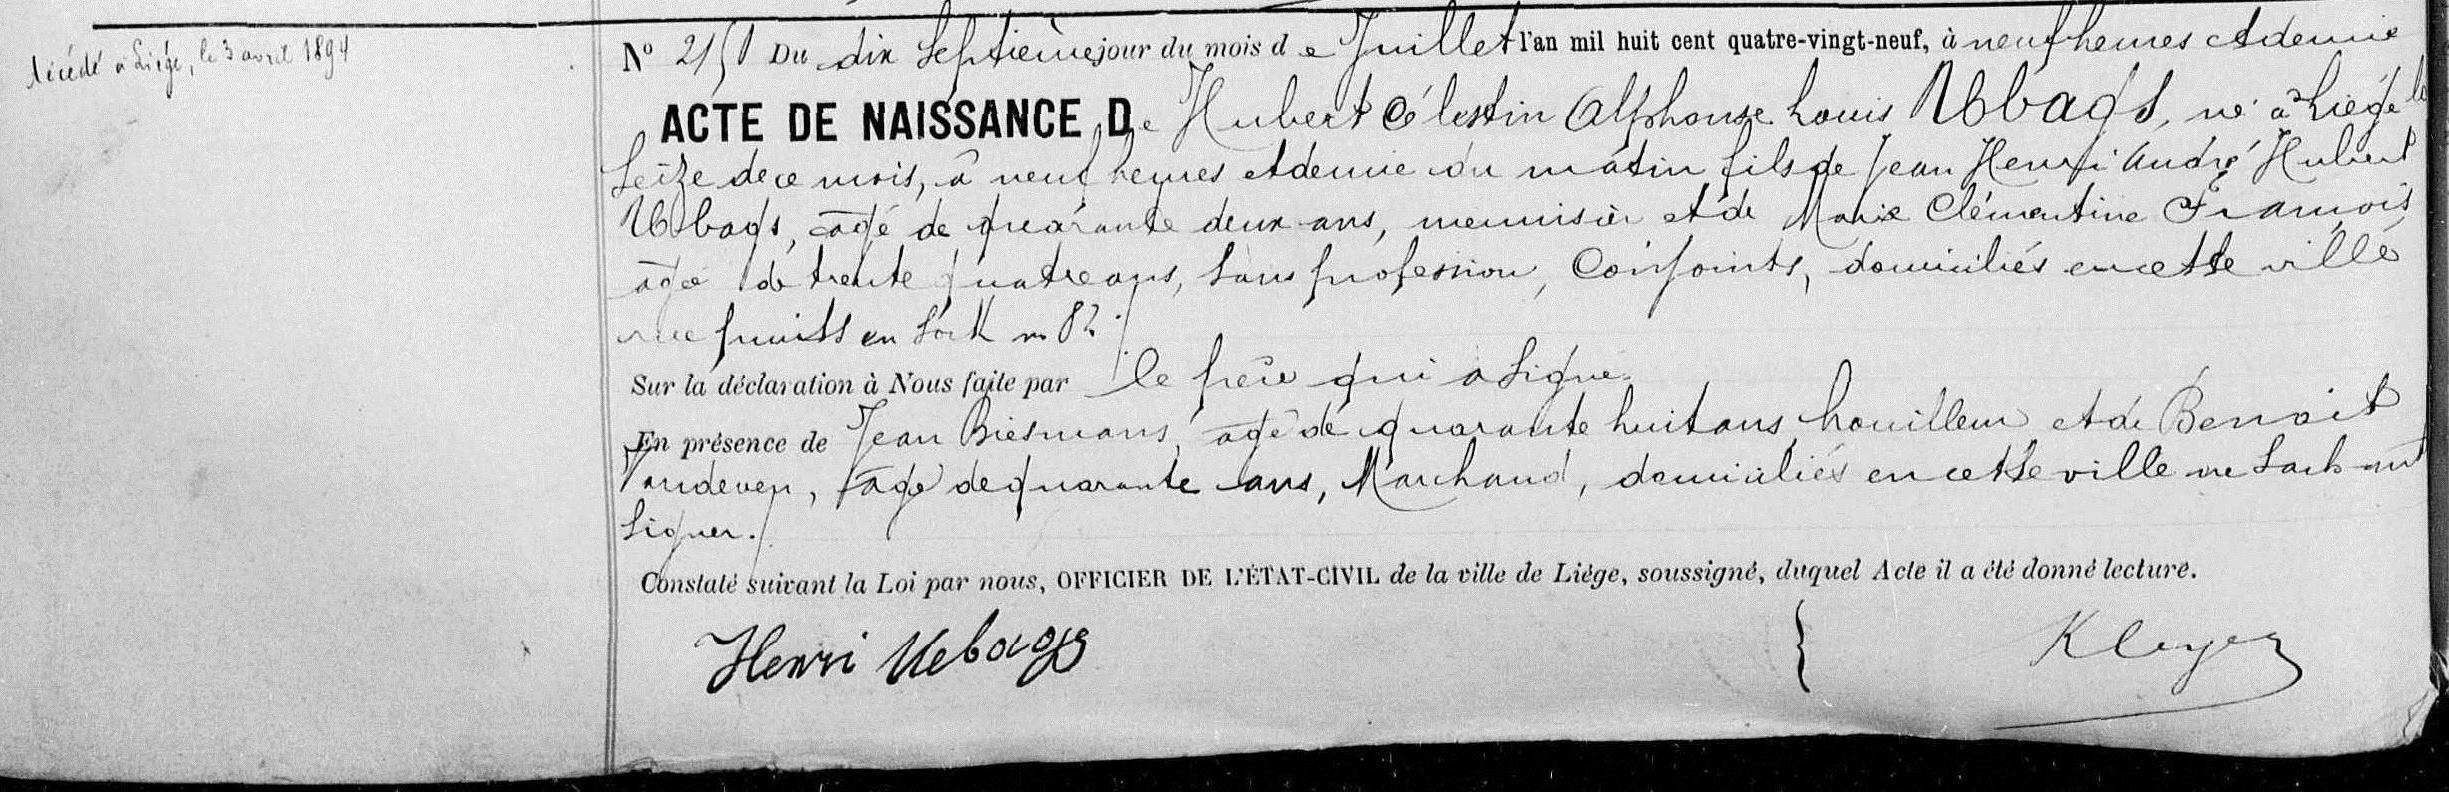 décédé à Liége, le 3 avril 1894
N° 2151 Du dix Septième jour du mois de Juillet l'an mil huit cent quatre-vingt-neuf, à neuf heures et demie
ACTE DE NAISSANCE De Hubert Célestin Alphonse Louis Ubbags, né à Liége le
Seize de ce mois, à neuf heures et demie du matin fils de Jean Henri André Hubert
Ubbags, âgé de quarante deux ans, menuisier et de Marie Clémentine François
agée de trente quatre ans, sans profession, Conjoints, domiciliés en cette ville
rue puits en Sock n° 82.
Sur la déclaration à Nous faite par le père qui a Signé.
En présence de Jean Biesmans, âgé de quarante huit ans, houilleur et de Benoit
Vandeven, âgé de quarante ans, Marchand, domiciliés en cette ville ne Sachant
Signer.
Constaté suivant la Loi par nous, OFFICIER DE L'ÉTAT-CIVIL de la ville de Liége, soussigné, duquel Acte il a été donné lecture.
Henri Uebags } Kleyer